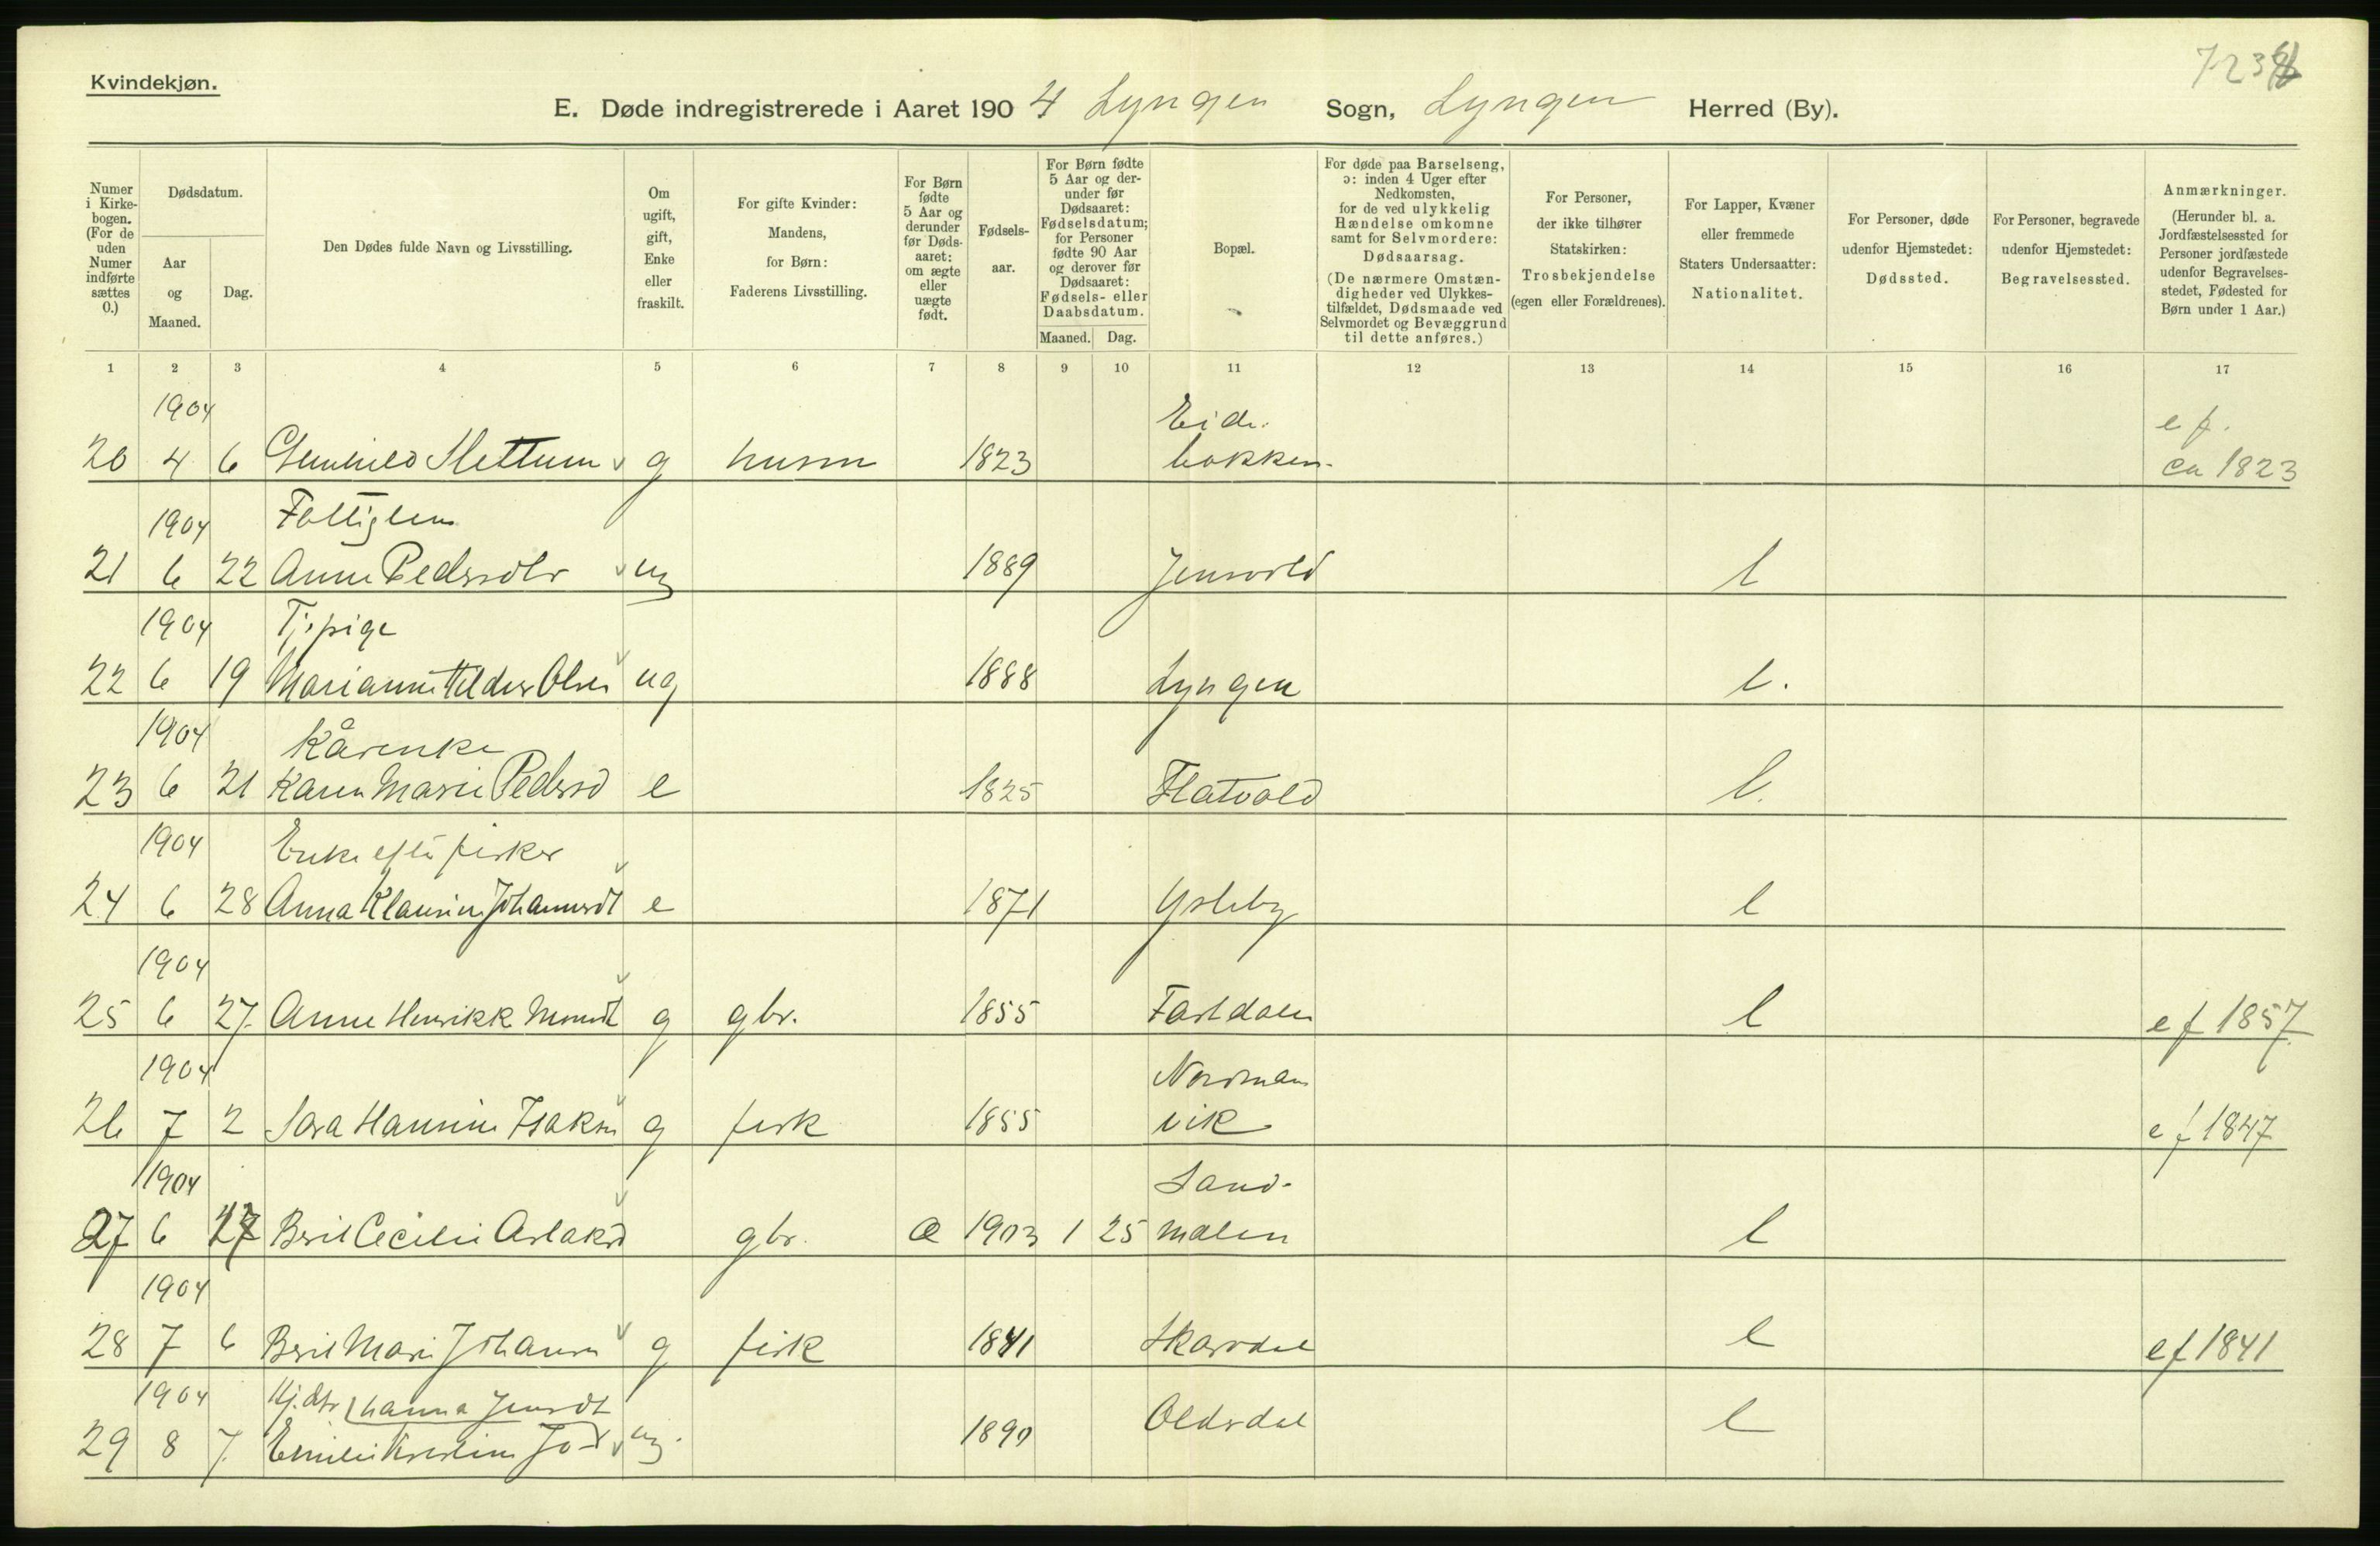 7238
Kvindekjøn.
E. Døde indregistrerede i Aaret 1904 Lyngen Sogn, Lyngen Herred (By).
Numer i Kirke-bogen. (For de uden Numer indførte sættes 0.)
Dødsdatum.
Aar og Maaned.
Dag.
Den Dødes fulde Navn og Livsstilling.
Om ugift, gift, Enke eller fraskilt.
For gifte Kvinder: Mandens, for Børn: Faderens Livsstilling.
For Børn fødte 5 Aar og derunder før Døds-aaret: om ægte eller uægte født.
Fødsels-aar.
For Børn fødte 5 Aar og der-under før Dødsaaret: Fødselsdatum; for Personer fødte 90 Aar og derover før Dødsaaret: Fødsels- eller Daabsdatum.
Maaned. Dag.
Bopæl.
For døde paa Barselseng, ɔ: inden 4 Uger efter Nedkomsten, for de ved ulykkelig Hændelse omkomne samt for Selvmordere: Dødsaarsag. (De nærmere Omstæn-digheder ved Ulykkes-tilfældet, Dødsmaade ved Selvmordet og Bevæggrund til dette anføres.)
For Personer, der ikke tilhører Statskirken: Trosbekjendelse (egen eller Forældrenes).
For Lapper, Kvæner eller fremmede Staters Undersaatter: Nationalitet.
For Personer, døde udenfor Hjemstedet: Dødssted.
For Personer, begravede udenfor Hjemstedet: Begravelsessted.
Anmærkninger. (Herunder bl. a. Jordfæstelsessted for Personer jordfæstede udenfor Begravelses-stedet, Fødested for Børn under 1 Aar.)
1 2 3 4 5 6 7 8 9 10 11 12 13 14 15 16 17
1904 Eide- ef.
20 4 6 Slettum g husm 1823 bakken ca 1823
1904 Fattiglem
21 6 22 Anne Pedersdtr ug 1889 l
1904 Tj.pige
22 6 19 Marianne Olsen ug 1888 Lyngen l.
1904 Kårenke
23 6 21 Karen Marie Pedersd e 1825 Flatvold l.
1904 Enke efter fisker
24 6 28 Anna Klausine Johannesdt e 1871 l
1904
25 6 27. Anne Henrikke g gbr. 1855 l ef 1857
1904 Nordman
26 7 2 Sara Hansine Isaksen g fisk 1855 vik ef 1847
1904 Sand-
27 6 Berit Cecilie Aslaksd gbr. Æ 1903 1 25 malen l
1904
28 7 6 Berit Marie Johansen g fisk 1841 Skardal l ef 1841
1904 Hj. dtr Jensdt Oldsdal l
29 8 7. Emilie ug. 1890